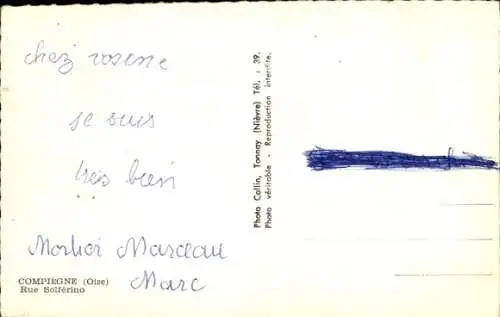 chez
je suis
très bien
Marceau
Marc
COMPIEGNE (Oise)
Rue Solférino
Photo Collin, Tannay (Nièvre) Tél. : 39.
Photo véritable - Reproduction interdite.